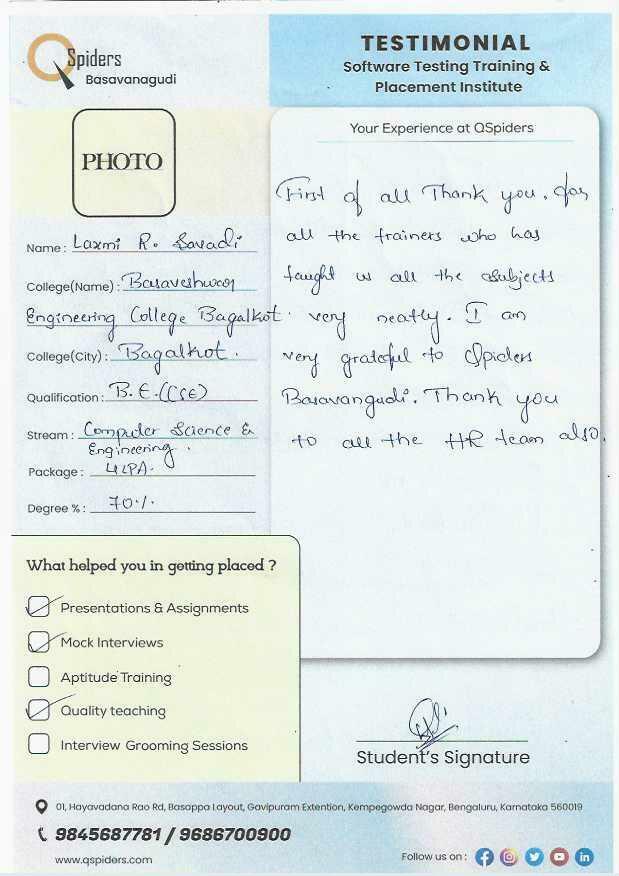 QSpiders
Basavanagudi
TESTIMONIAL
Software Testing Training &
Placement Institute
PHOTO
Name : Laxmi R. Savadi
College(Name) : Basaveshwar
Engineering College Bagalkot.
College(City) : Bagalkot.
Qualification : B.E.(CSE)
Stream : Computer Science &
Engineering.
Package : 4LPA.
Degree % : 70%.
Your Experience at QSpiders
First of all Thank you. for
all the trainers who has
taught us all the subjects
very neatly. I am
very grateful to QSpiders
Basavangudi. Thank you
to all the HR team also.
What helped you in getting placed ?
Presentations & Assignments
Mock Interviews
Aptitude Training
Quality teaching
Interview Grooming Sessions
Student's Signature
01, Hayavadana Rao Rd, Basappa Layout, Gavipuram Extention, Kempegowda Nagar, Bengaluru, Karnataka 560019
9845687781 / 9686700900
www.qspiders.com
Follow us on :